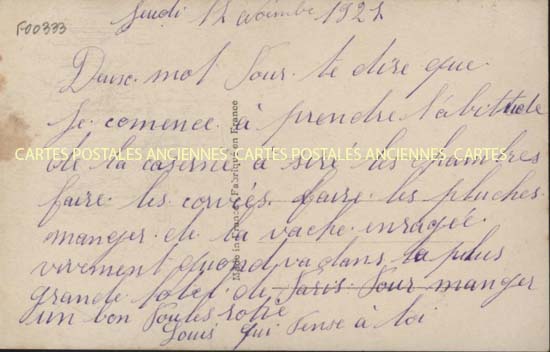 F00333
Jeudi 12 1921
Deux mot Pour te dire que
Je comence à prendre l'abittude
de la caserne à siré les chambres
faire les corvés faire les pluches
manger de la vache enragée
vivement quond va dans la plus
grande hotel de Paris Pour manger
un bon Poulet rotie
Louis qui Pense à toi
Made in France - Fabriqué en France
CARTES POSTALES ANCIENNES CARTES POSTALES ANCIENNES CARTES